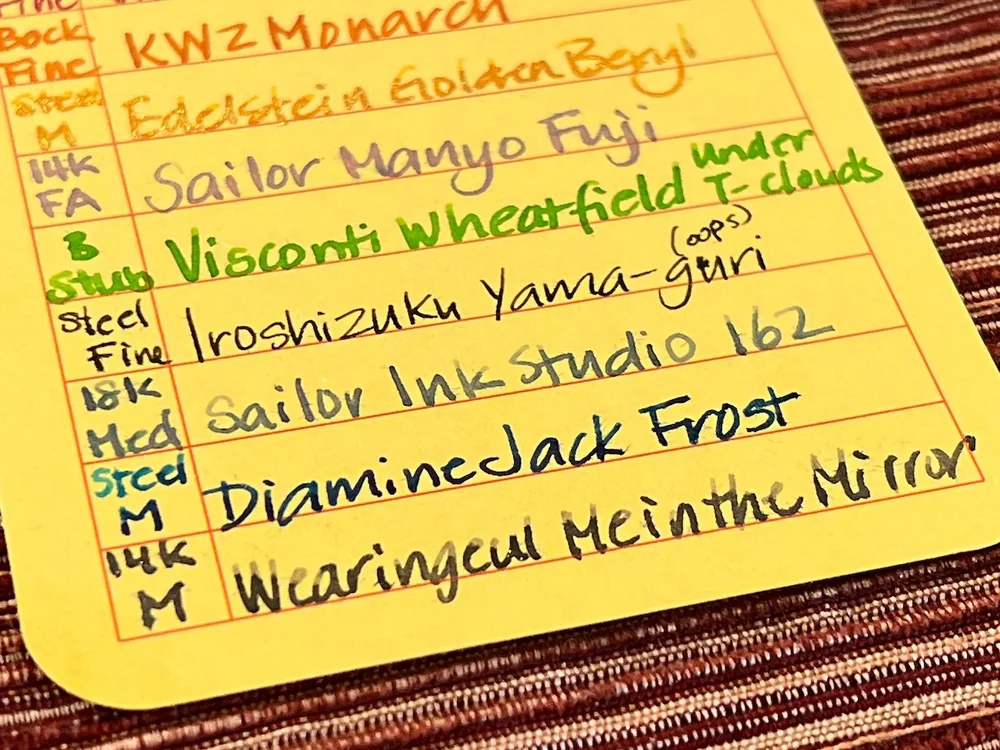 Fine
Bock
Fine
KWZ Monarch
Steel
M
Edelstein Golden Beryl
14K
FA
Sailor Manyo Fuji
B
Stub
Visconti Wheatfield Under
T-clouds
Steel
Fine
Iroshizuku Yama-guri
(oops)
18K
Med
Sailor Ink Studio 162
Steel
M
Diamine Jack Frost
14K
M
Wearingeul Me in the Mirror